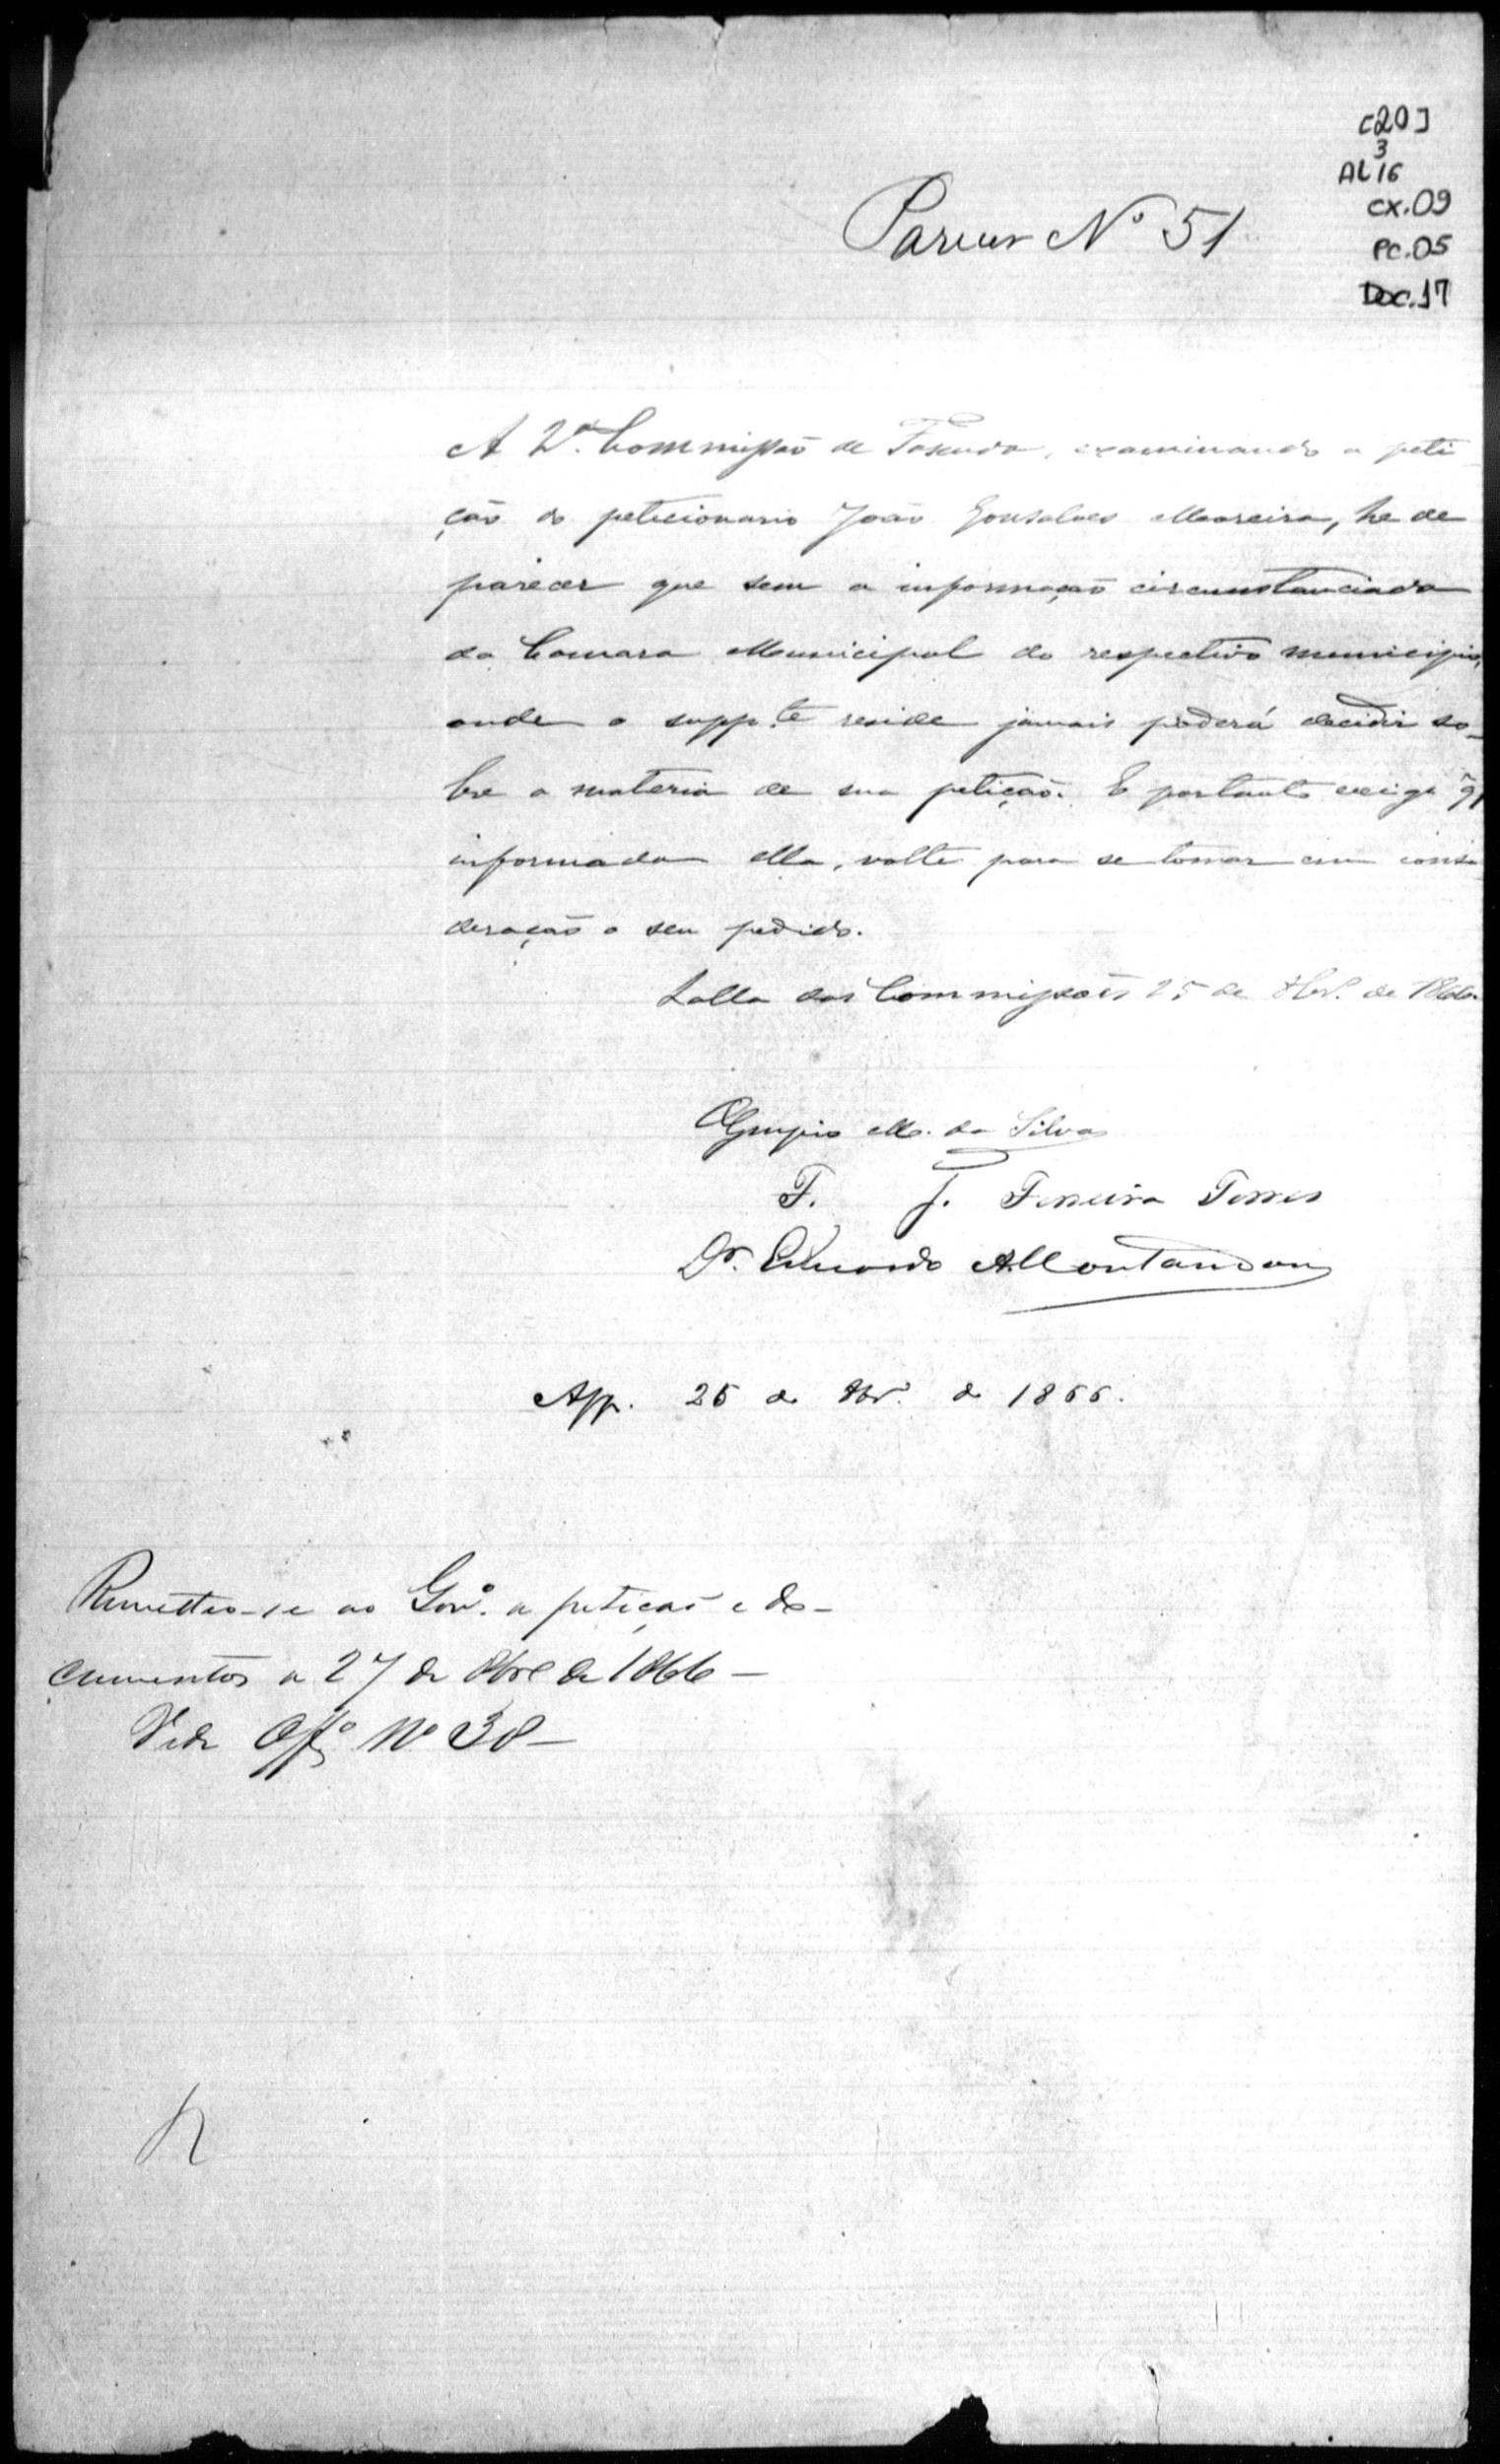 [20]
3
AL 16
cx.09
PC.05
Doc.17
Parecer Nº 51
A 2ª Commissão de Fasenda, examinando a peti
ção do peticionario João Gonsalves Moreira, he de
parecer que sem a informação circunstanciada
da Camara Municipal do respectivo municipio,
onde o supp.te reside jamais poderá decidir so-
bre a materia de sua petição. E portanto exige q̃
informada ella, volte para se tomar em consi
deração o seu pedido.
Salla das Commissoẽs 25 de 8br. de 1866.
Olympio M. da Silva
F. J. Ferreira Torres
Dr. Eduardo A Montandon
App. 25 de 8br. de 1866.
Remetteo-se ao Govº. a petição e do-
cumentos a 27 de 8bro de 1866 -
Vide Offº Nº 38 -